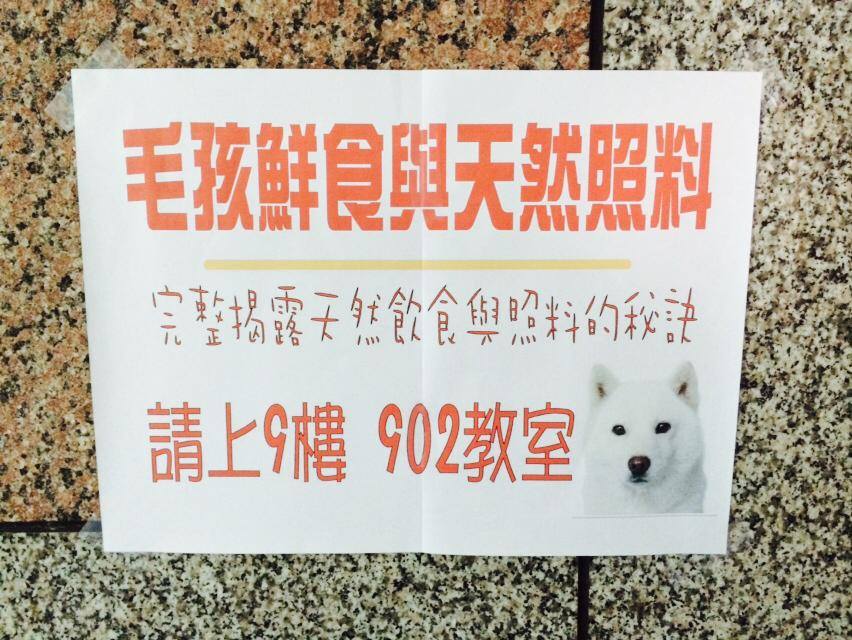 毛孩鮮食與天然照料
完整揭露天然飲食與照料的秘訣
請上9樓 902教室